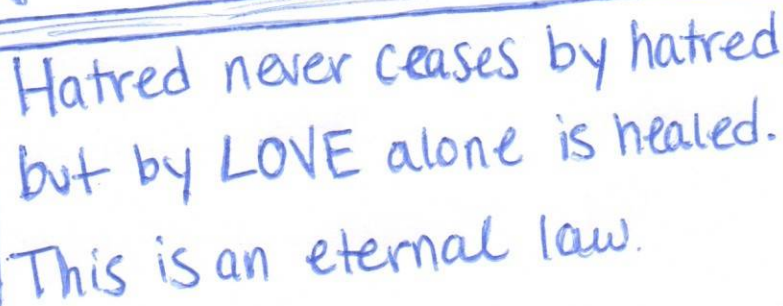 Hatred never ceases by hatred
but by LOVE alone is healed.
This is an eternal law.